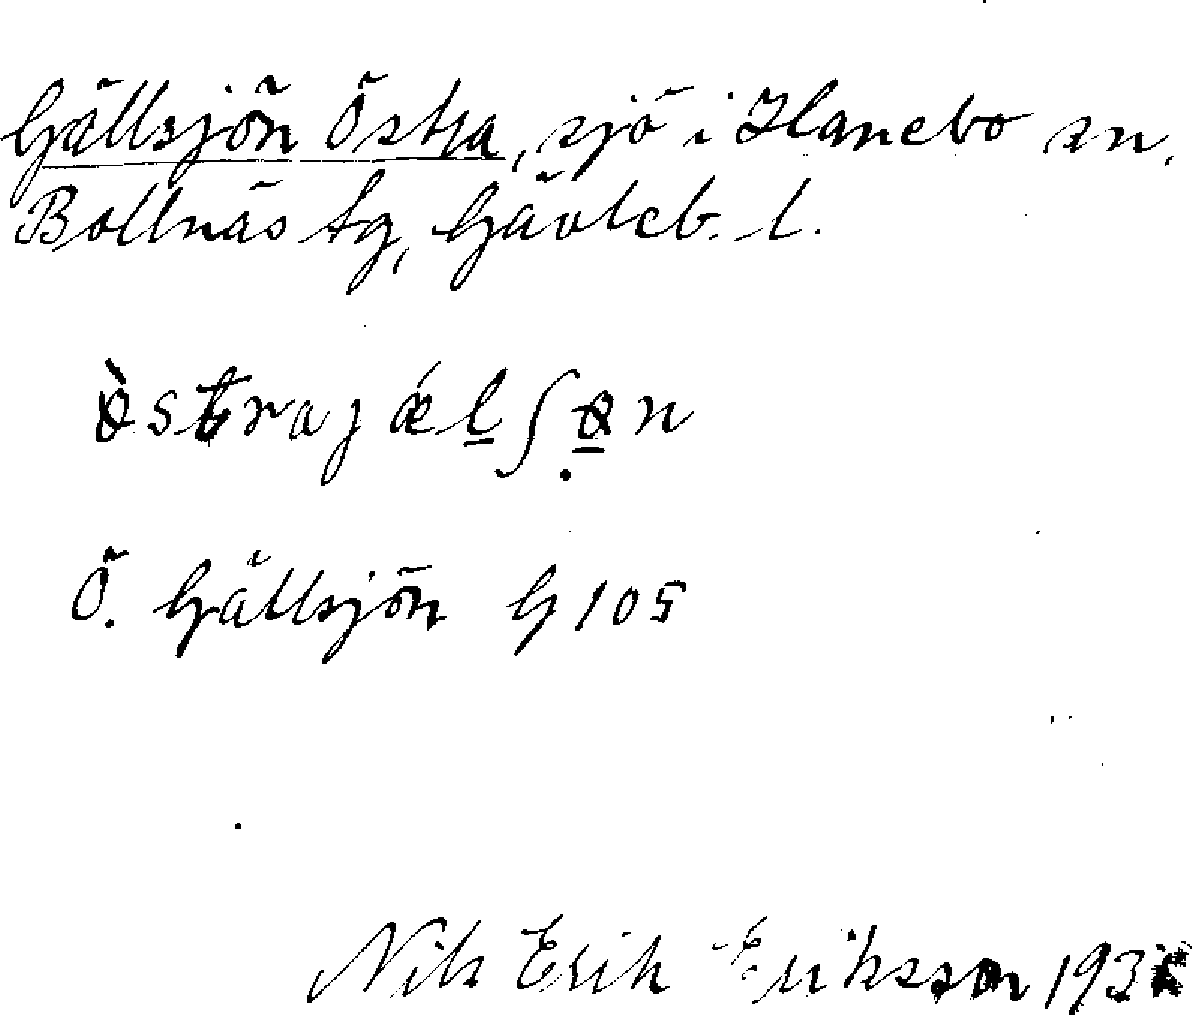 Gällsjön Östra, sjö i Hanebo sn,
Bollnäs tg, Gävleb. l.
ö̀strajǽl̲ʃö̲̣n
Ö. Gällsjön G 105
Nils Erik Eriksson